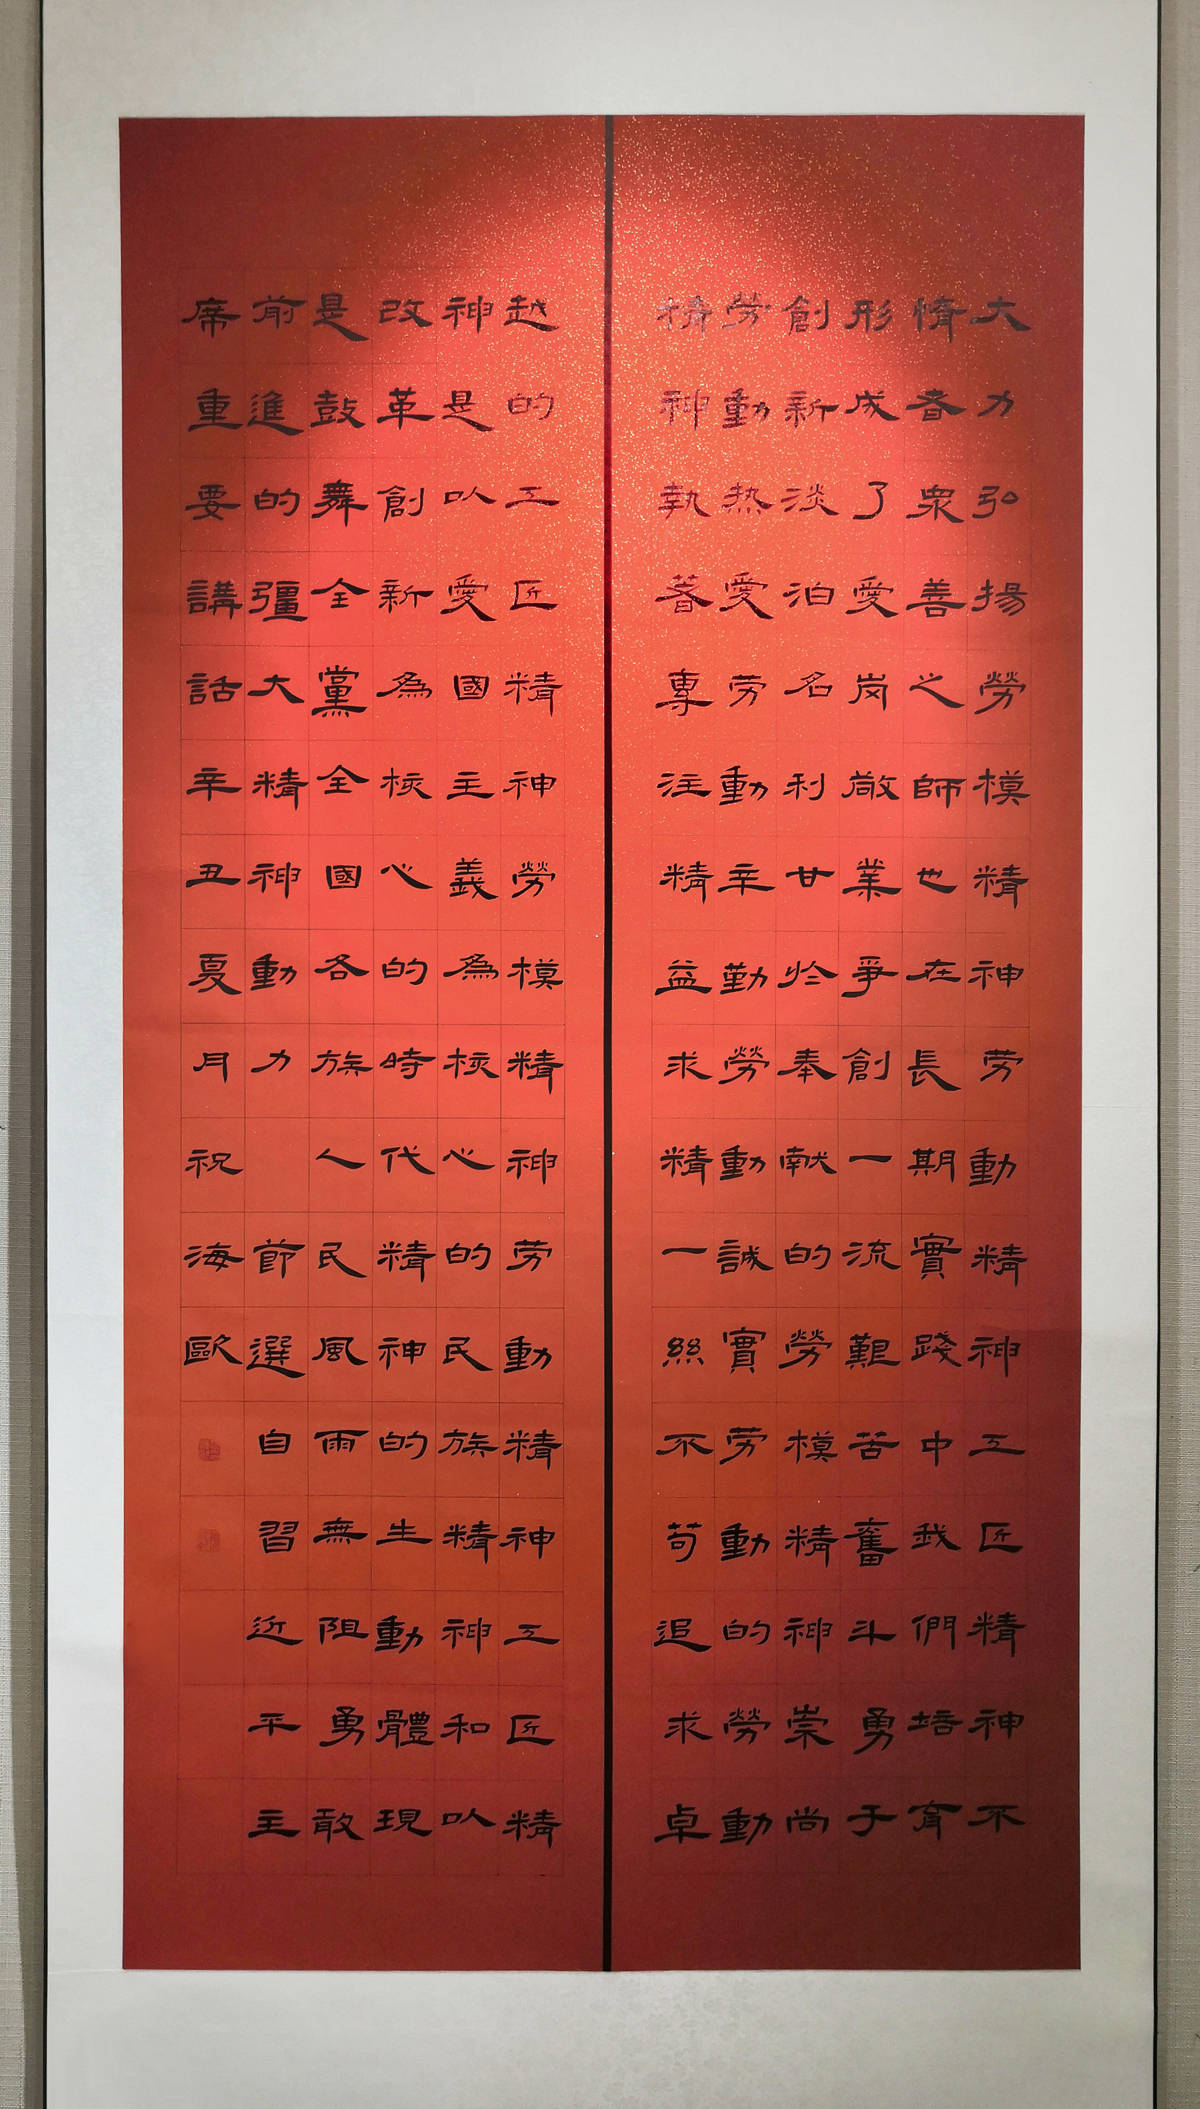 大力弘揚勞模精神劳動精神工匠精神不
惰者眾善之師也在長期實踐中我們培育
形成了愛岗敬業爭創一流艱苦奮斗勇于
創新淡泊名利甘於奉献的勞模精神崇尚
劳動热愛劳動辛勤勞動誠實劳動的勞動
精神執著專注精益求精一絲不苟追求卓
越的工匠精神勞模精神劳動精神工匠精
神是以愛國主義為核心的民族精神和以
改革創新為核心的時代精神的生動體現
是鼓舞全黨全國各族人民風雨無阻勇敢
前進的彊大精神動力 節選自習近平主
席重要講話辛丑夏月祝海歐